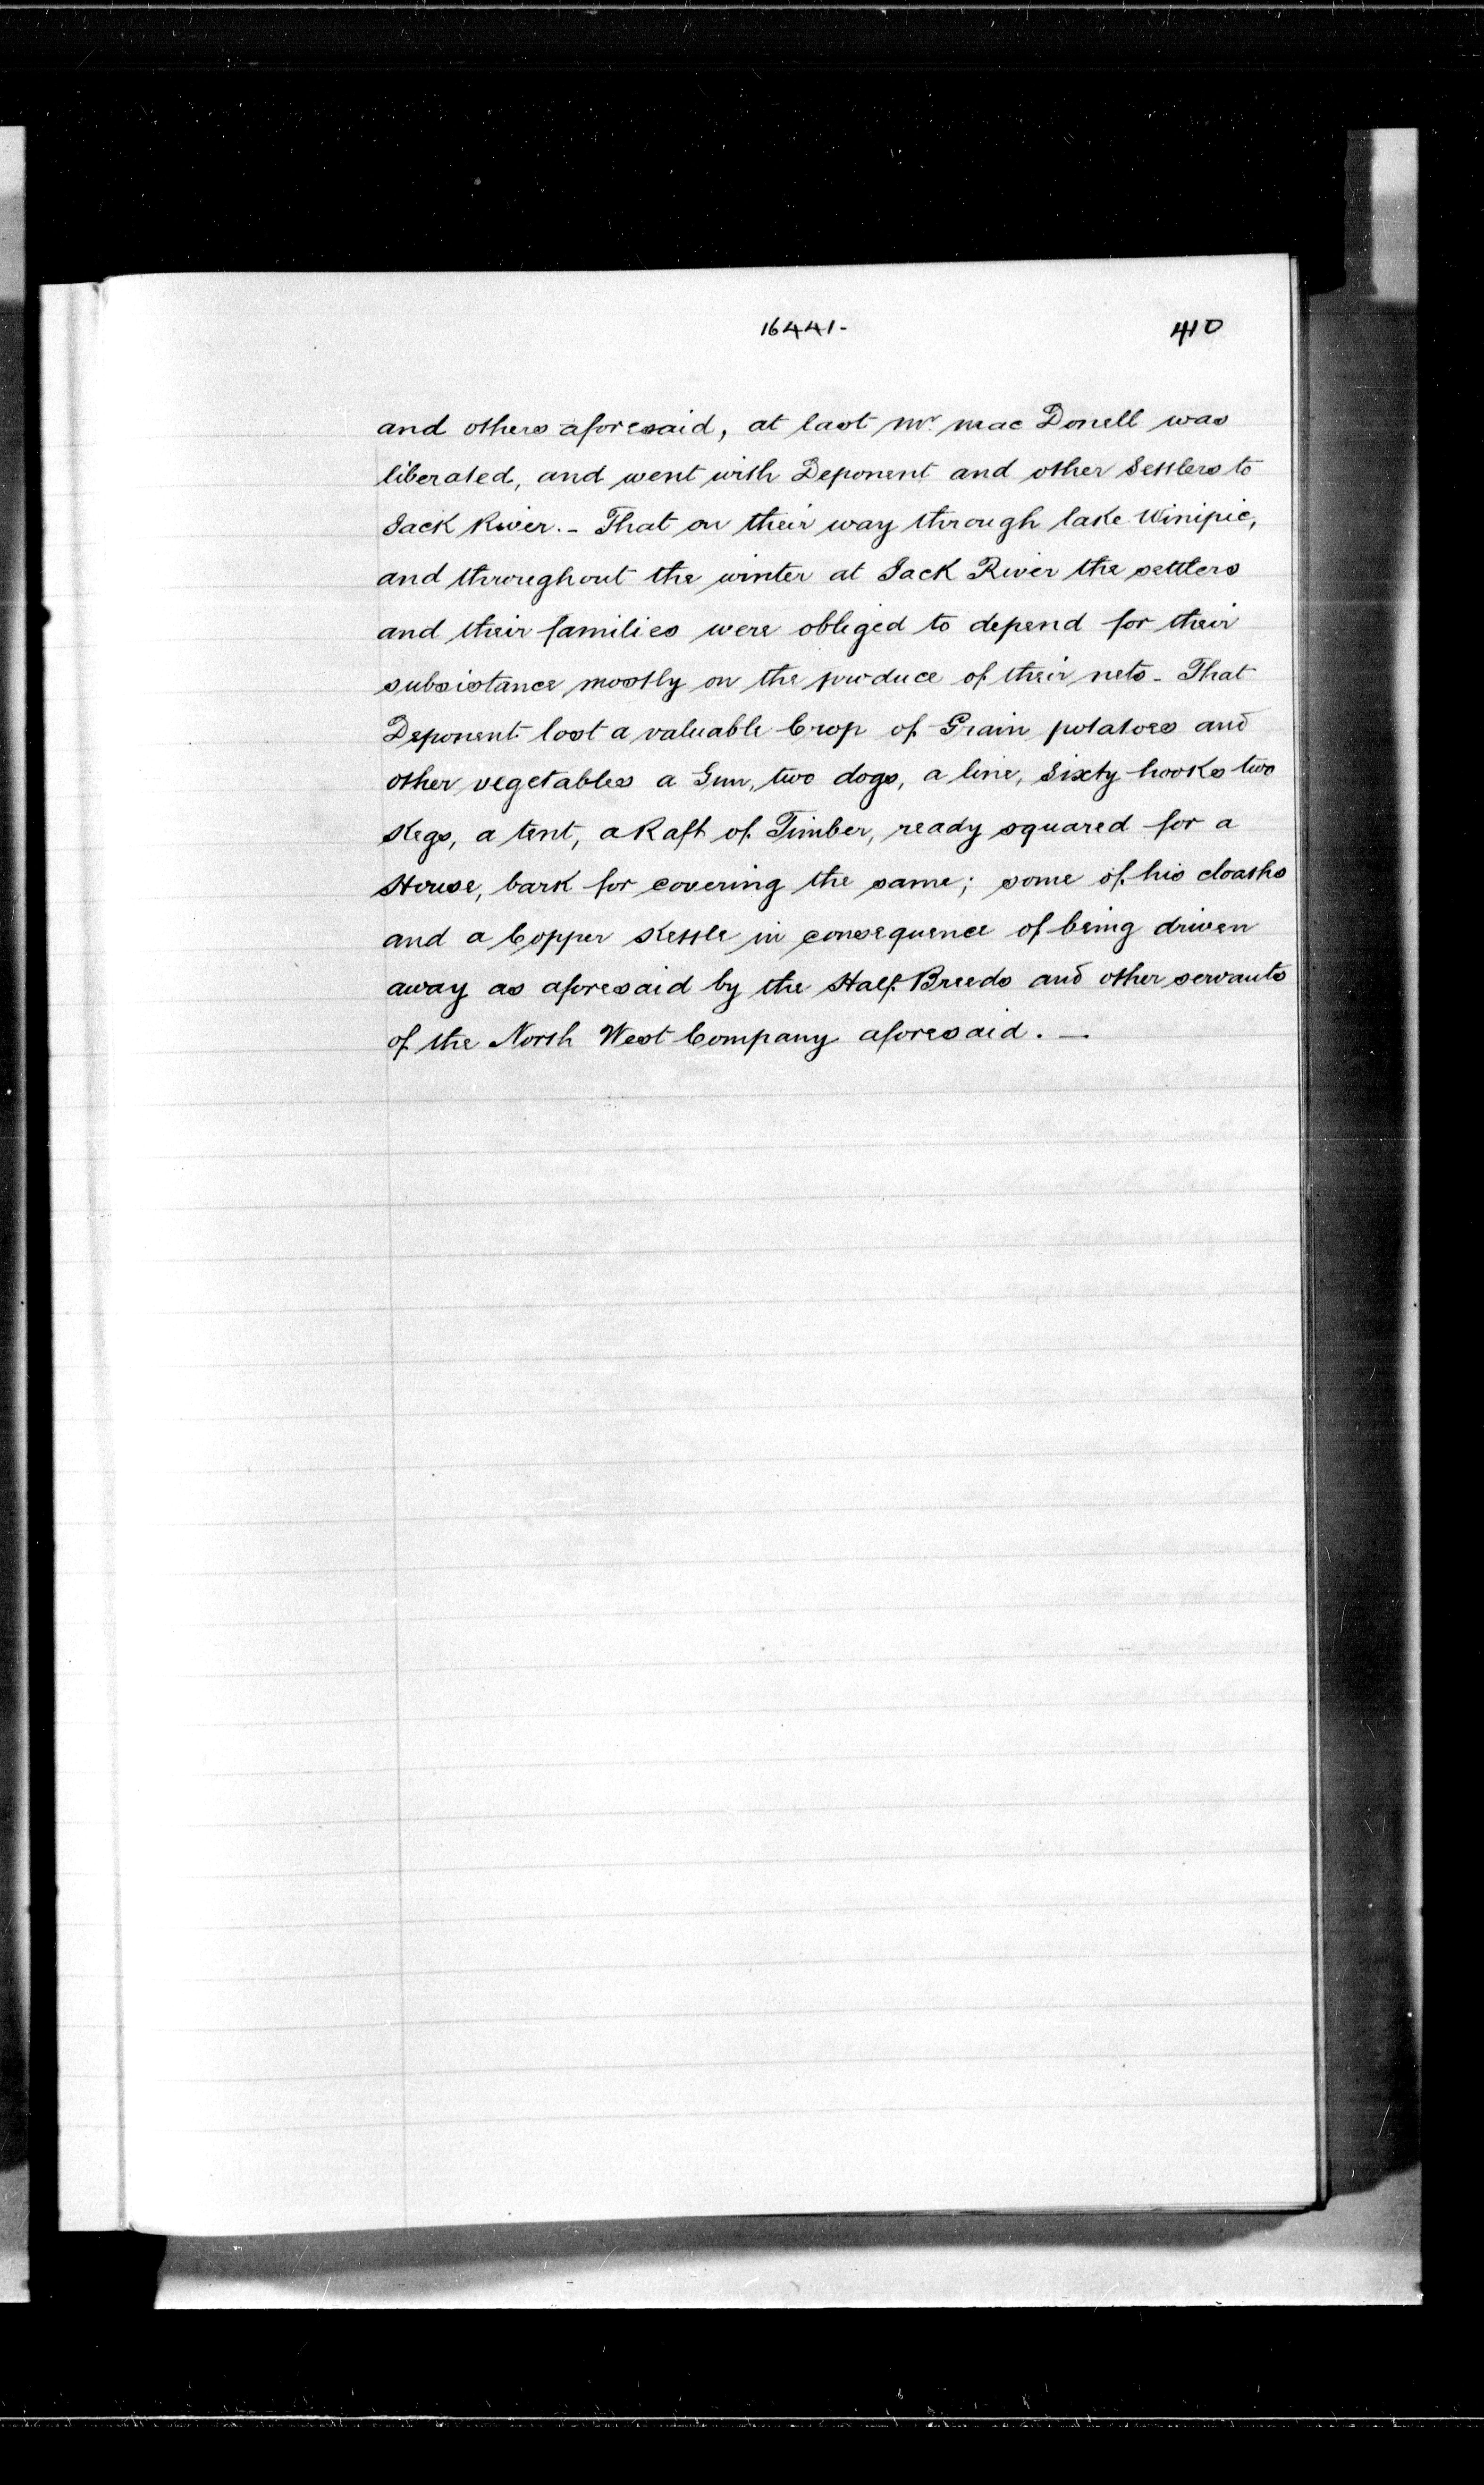 16441-
410
and others aforesaid, at last Mr. Mac Donell was
liberated, and went with Deponent and other Settlers to
Jack River. - That on their way through lake Winipic,
and throughout the winter at Jack River the settlers
and their families were obliged to depend for their
subsistance mostly on the produce of their nets - That
Deponent lost a valuable Crop of Grain potatoes and
other vegetables a Gun, two dogs, a line, Sixty hooks two
Kegs, a tent, a Raft of Timber, ready squared for a
House, bark for covering the same; some of his cloaths
and a Copper Kettle in consequence of being driven
away as aforesaid by the Half Breeds and other servants
of the North West Company aforesaid. —